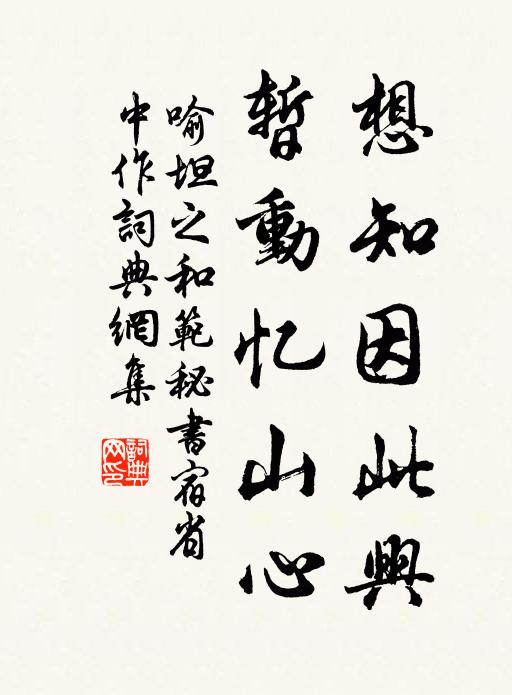 想知因此興
暫動忆山心
喻坦之和範秘書宿省
中作詞典網集
詞典
网印